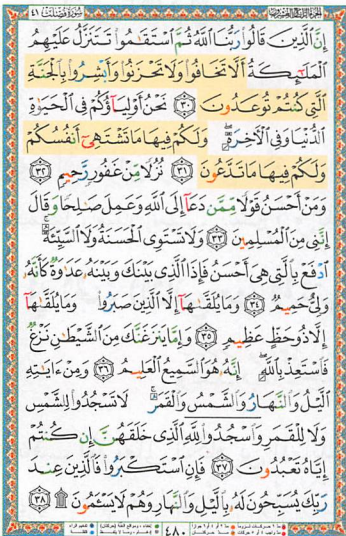 سُورَةُ فُصِّلَتْ ٤١
إِنَّ ٱلَّذِينَ قَالُوا۟ رَبُّنَا ٱللَّهُ ثُمَّ ٱسْتَقَـٰمُوا۟ تَتَنَزَّلُ عَلَيْهِمُ
ٱلْمَلَـٰٓئِكَةُ أَلَّا تَخَافُوا۟ وَلَا تَحْزَنُوا۟ وَأَبْشِرُوا۟ بِٱلْجَنَّةِ
ٱلَّتِى كُنتُمْ تُوعَدُونَ ٣٠ نَحْنُ أَوْلِيَآؤُكُمْ فِى ٱلْحَيَوٰةِ
ٱلدُّنْيَا وَفِى ٱلْـَٔاخِرَةِ ۖ وَلَكُمْ فِيهَا مَا تَشْتَهِىٓ أَنفُسُكُمْ
وَلَكُمْ فِيهَا مَا تَدَّعُونَ ٣١ نُزُلًا مِّنْ غَفُورٍ رَّحِيمٍ ٣٢
وَمَنْ أَحْسَنُ قَوْلًا مِّمَّن دَعَآ إِلَى ٱللَّهِ وَعَمِلَ صَـٰلِحًا وَقَالَ
إِنَّنِى مِنَ ٱلْمُسْلِمِينَ ٣٣ وَلَا تَسْتَوِى ٱلْحَسَنَةُ وَلَا ٱلسَّيِّئَةُ ۚ
ٱدْفَعْ بِٱلَّتِى هِىَ أَحْسَنُ فَإِذَا ٱلَّذِى بَيْنَكَ وَبَيْنَهُۥ عَدَٰوَةٌ كَأَنَّهُۥ
وَلِىٌّ حَمِيمٌ ٣٤ وَمَا يُلَقَّىٰهَآ إِلَّا ٱلَّذِينَ صَبَرُوا۟ وَمَا يُلَقَّىٰهَآ
إِلَّا ذُو حَظٍّ عَظِيمٍ ٣٥ وَإِمَّا يَنزَغَنَّكَ مِنَ ٱلشَّيْطَـٰنِ نَزْغٌ
فَٱسْتَعِذْ بِٱللَّهِ ۖ إِنَّهُۥ هُوَ ٱلسَّمِيعُ ٱلْعَلِيمُ ٣٦ وَمِنْ ءَايَـٰتِهِ
ٱلَّيْلُ وَٱلنَّهَارُ وَٱلشَّمْسُ وَٱلْقَمَرُ ۚ لَا تَسْجُدُوا۟ لِلشَّمْسِ
وَلَا لِلْقَمَرِ وَٱسْجُدُوا۟ لِلَّهِ ٱلَّذِى خَلَقَهُنَّ إِن كُنتُمْ
إِيَّاهُ تَعْبُدُونَ ٣٧ فَإِنِ ٱسْتَكْبَرُوا۟ فَٱلَّذِينَ عِندَ
رَبِّكَ يُسَبِّحُونَ لَهُۥ بِٱلَّيْلِ وَٱلنَّهَارِ وَهُمْ لَا يَسْـَٔمُونَ ۩ ٣٨
٤٨٠